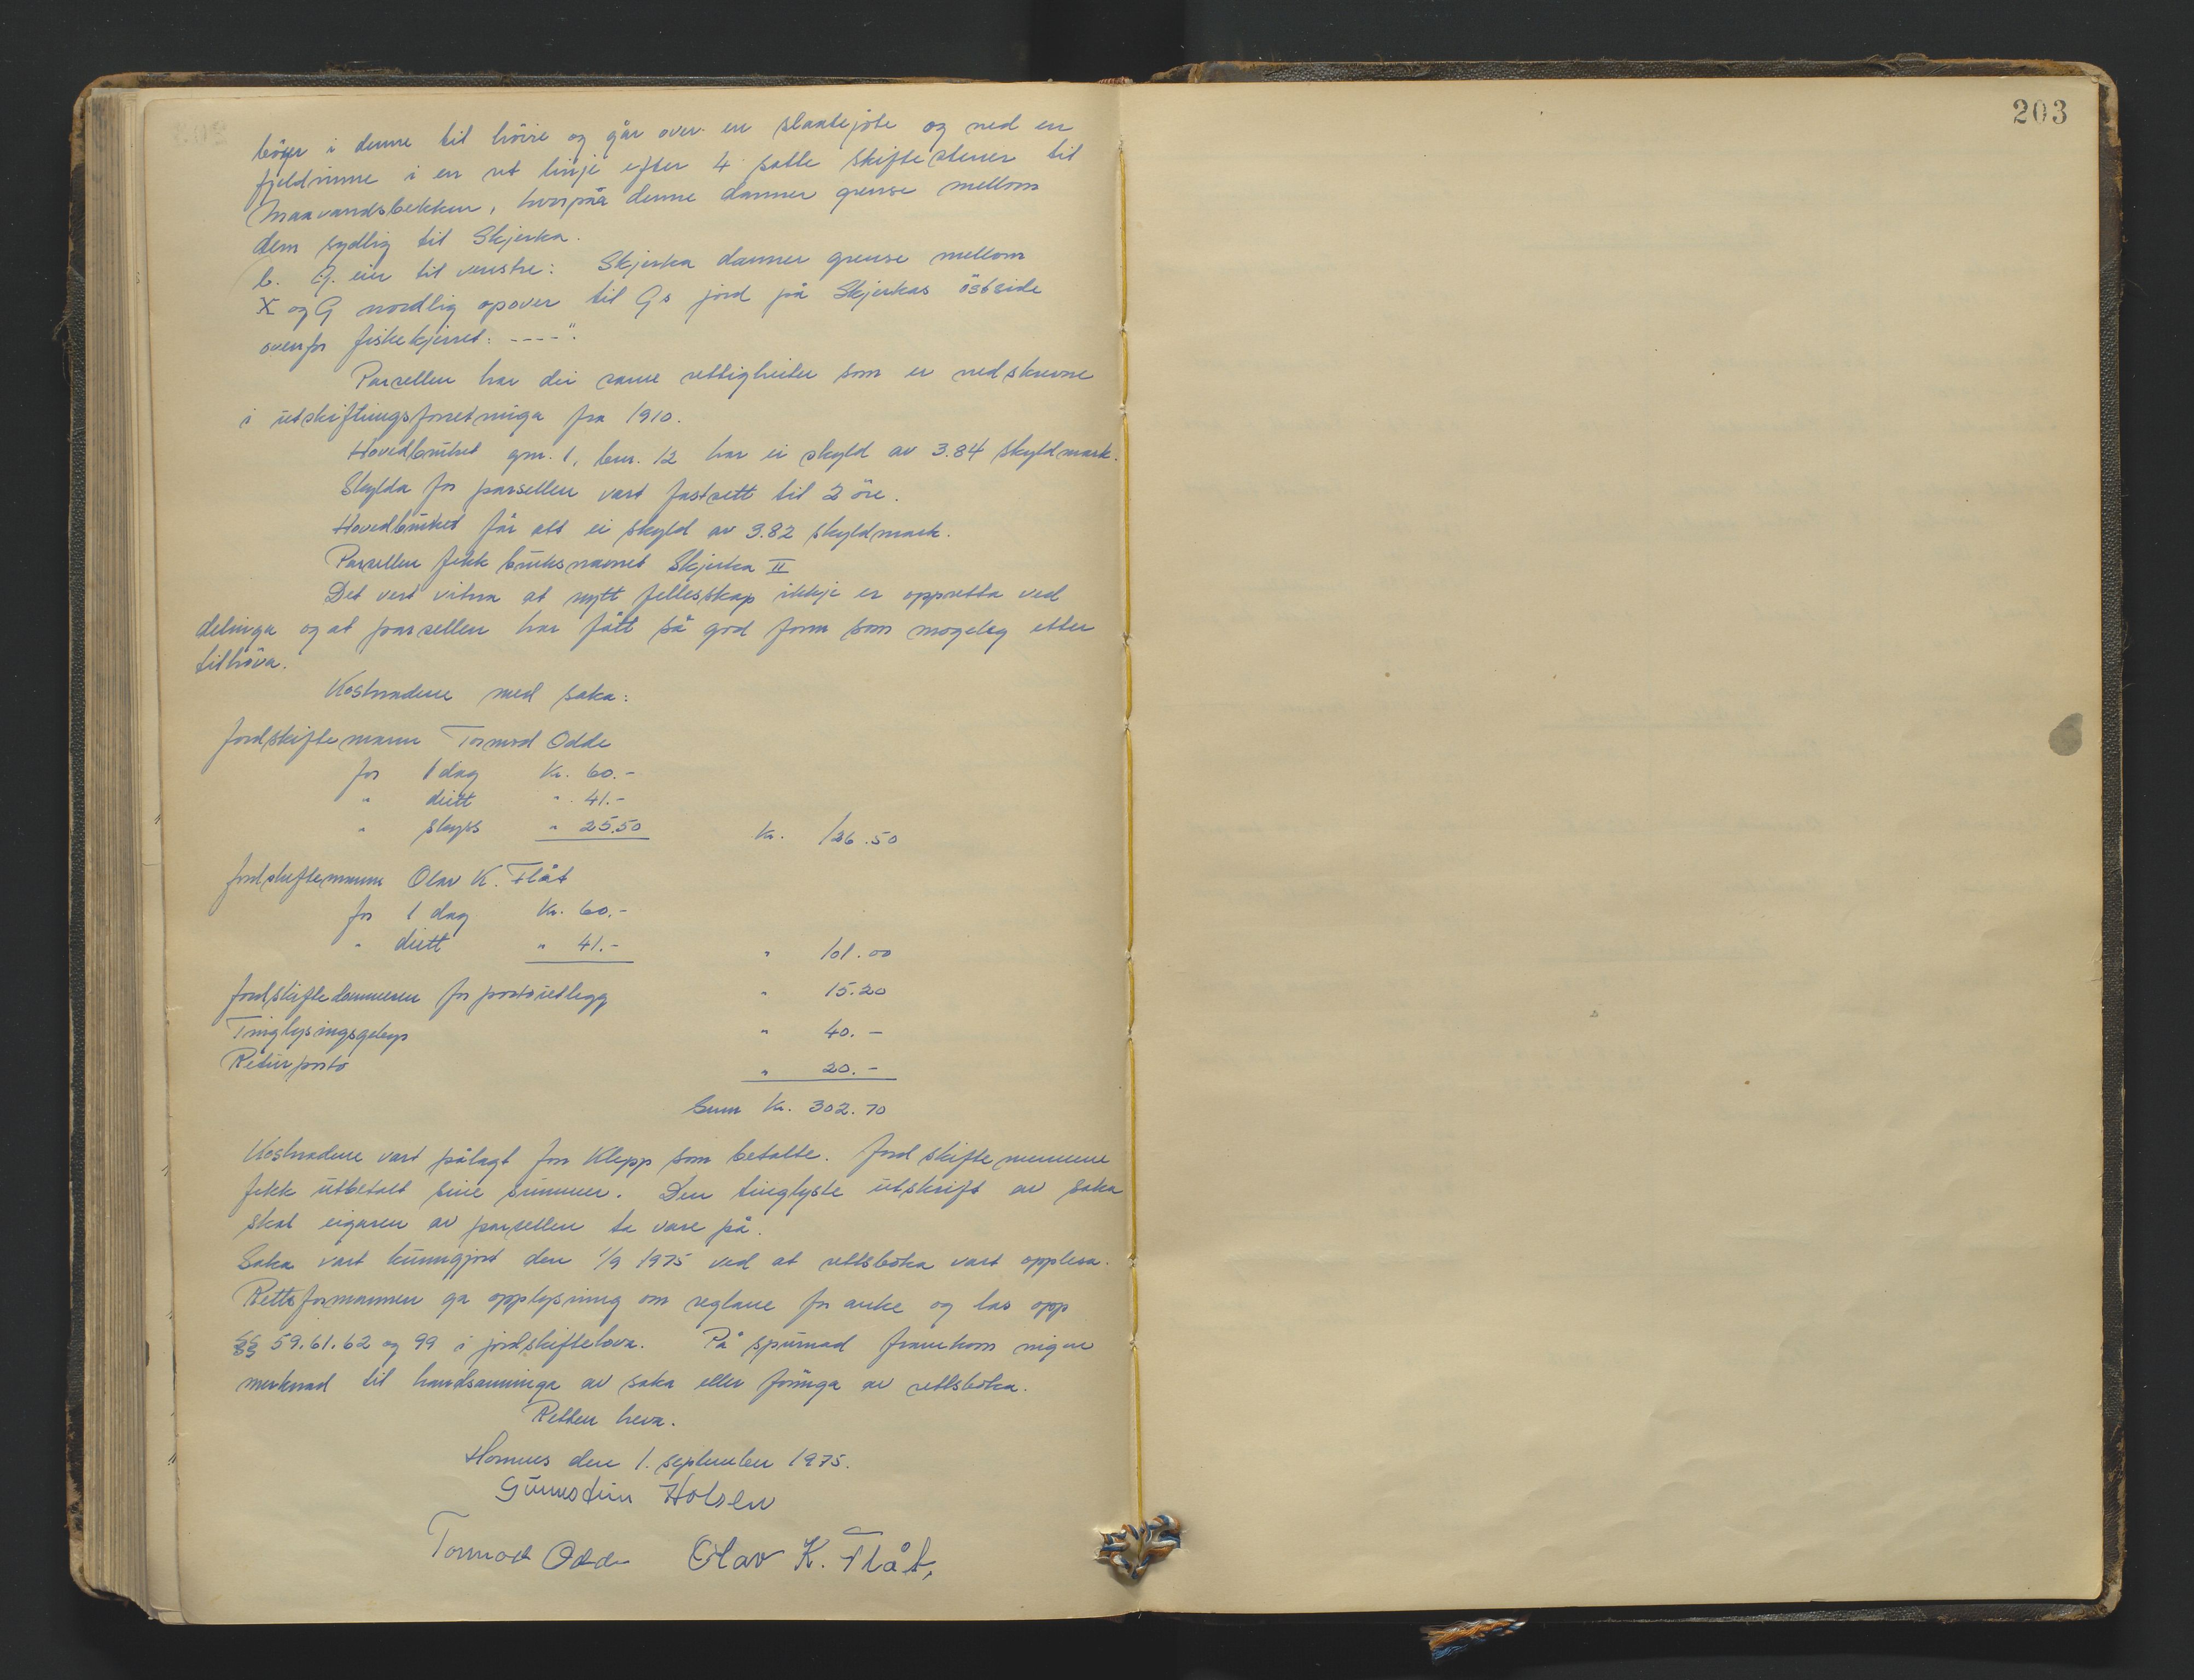 bøier i denne til høire og går over en slaatejøte og ned en
fjeldrinne i en ret linje efter 4 satte skiftestener til
Maavandsbekken, hvorpåa denne danner grense mellom
dem sydlig til Skjerka.
b. G. eier til venstre: Skjerka danner grense mellom
X og G nordlig opover til Gs jord på Skjerkas östside
ovenfor fiskekjerret. ----".
Parsellen har dei same rettigheiter som er nedskrevne
i utskiftingsforretninga fra 1910.
Hovedbruket gnr. 1, bnr. 12 har ei skyld av 3.84 skyldmark.
Skylda for parsellen vart fastsett til 2 öre.
Hovedbruket får att ei skyld av 3.82 skyldmark.
Parsellen fekk bruksnamnet Skjerka II
Det vert vitna at nytt fellesskap ikkje er oppretta ved
delinga og at parsellen har fått så god form som mogeleg etter
tilhöva.
Kostnadene med saka:
Jordskiftemann Tormod Odde
for 1 dag Kr. 60.-
" diett " 41.-
" skyss " 25.50 Kr. 126.50
Jordskiftemann Olav K. Flåt
for 1 dag Kr. 60.-
" diett " 41.- " 101.00
Jordskiftedommeren for portoutlegg " 15.20
Tinglysingsgebyr " 40.-
Returporto " 20.-
Sum Kr. 302.70
Kostnadene vart pålagt Klepp som betalte. Jordskiftemennene
fekk utbetalt sine summer. Den tinglyste utskrift av saka
skal eigaren av parsellen ta vare på.
Saka vart kunngjort den 1/9 1975 ved at rettsboka vart opplesa.
Rettsformannen ga opplysning om reglane for anke og las opp
§§ 59.61.62 og 99 i jordskiftelova. På spurnad framkom ingen
merknad til handsaminga av saka eller føringa av rettsboka.
Retten heva.
Homnes den 1. september 1975.
Gunnstein Holsen
Tormod Odde Olav K. Flåt.
203